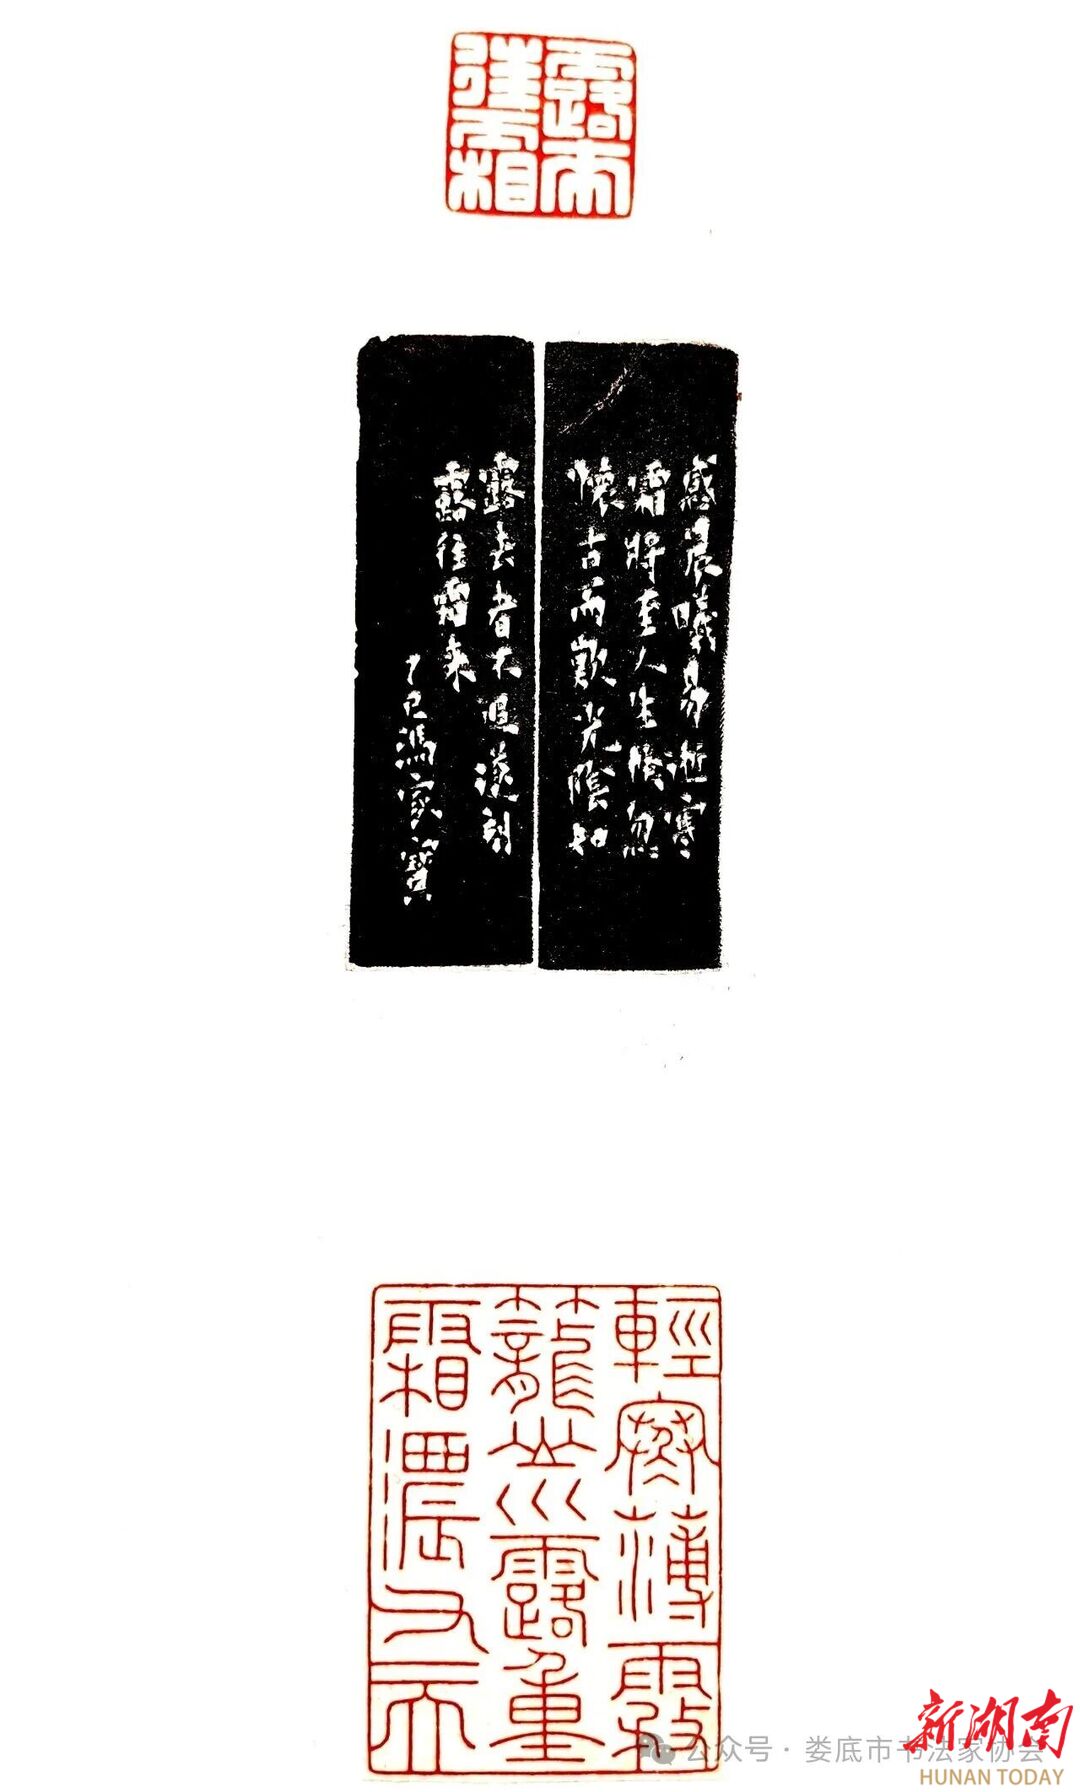 露往霜來
感晨曦易逝寒
霜將至人生倏忽
懷古而歎光陰如
露去者不追遂刻
露往霜來
乙巳馮家寶
輕寒薄霧
籠山川露重
霜濃又一天
公众号·娄底市书法家协会
新湖南
HUNAN TODAY